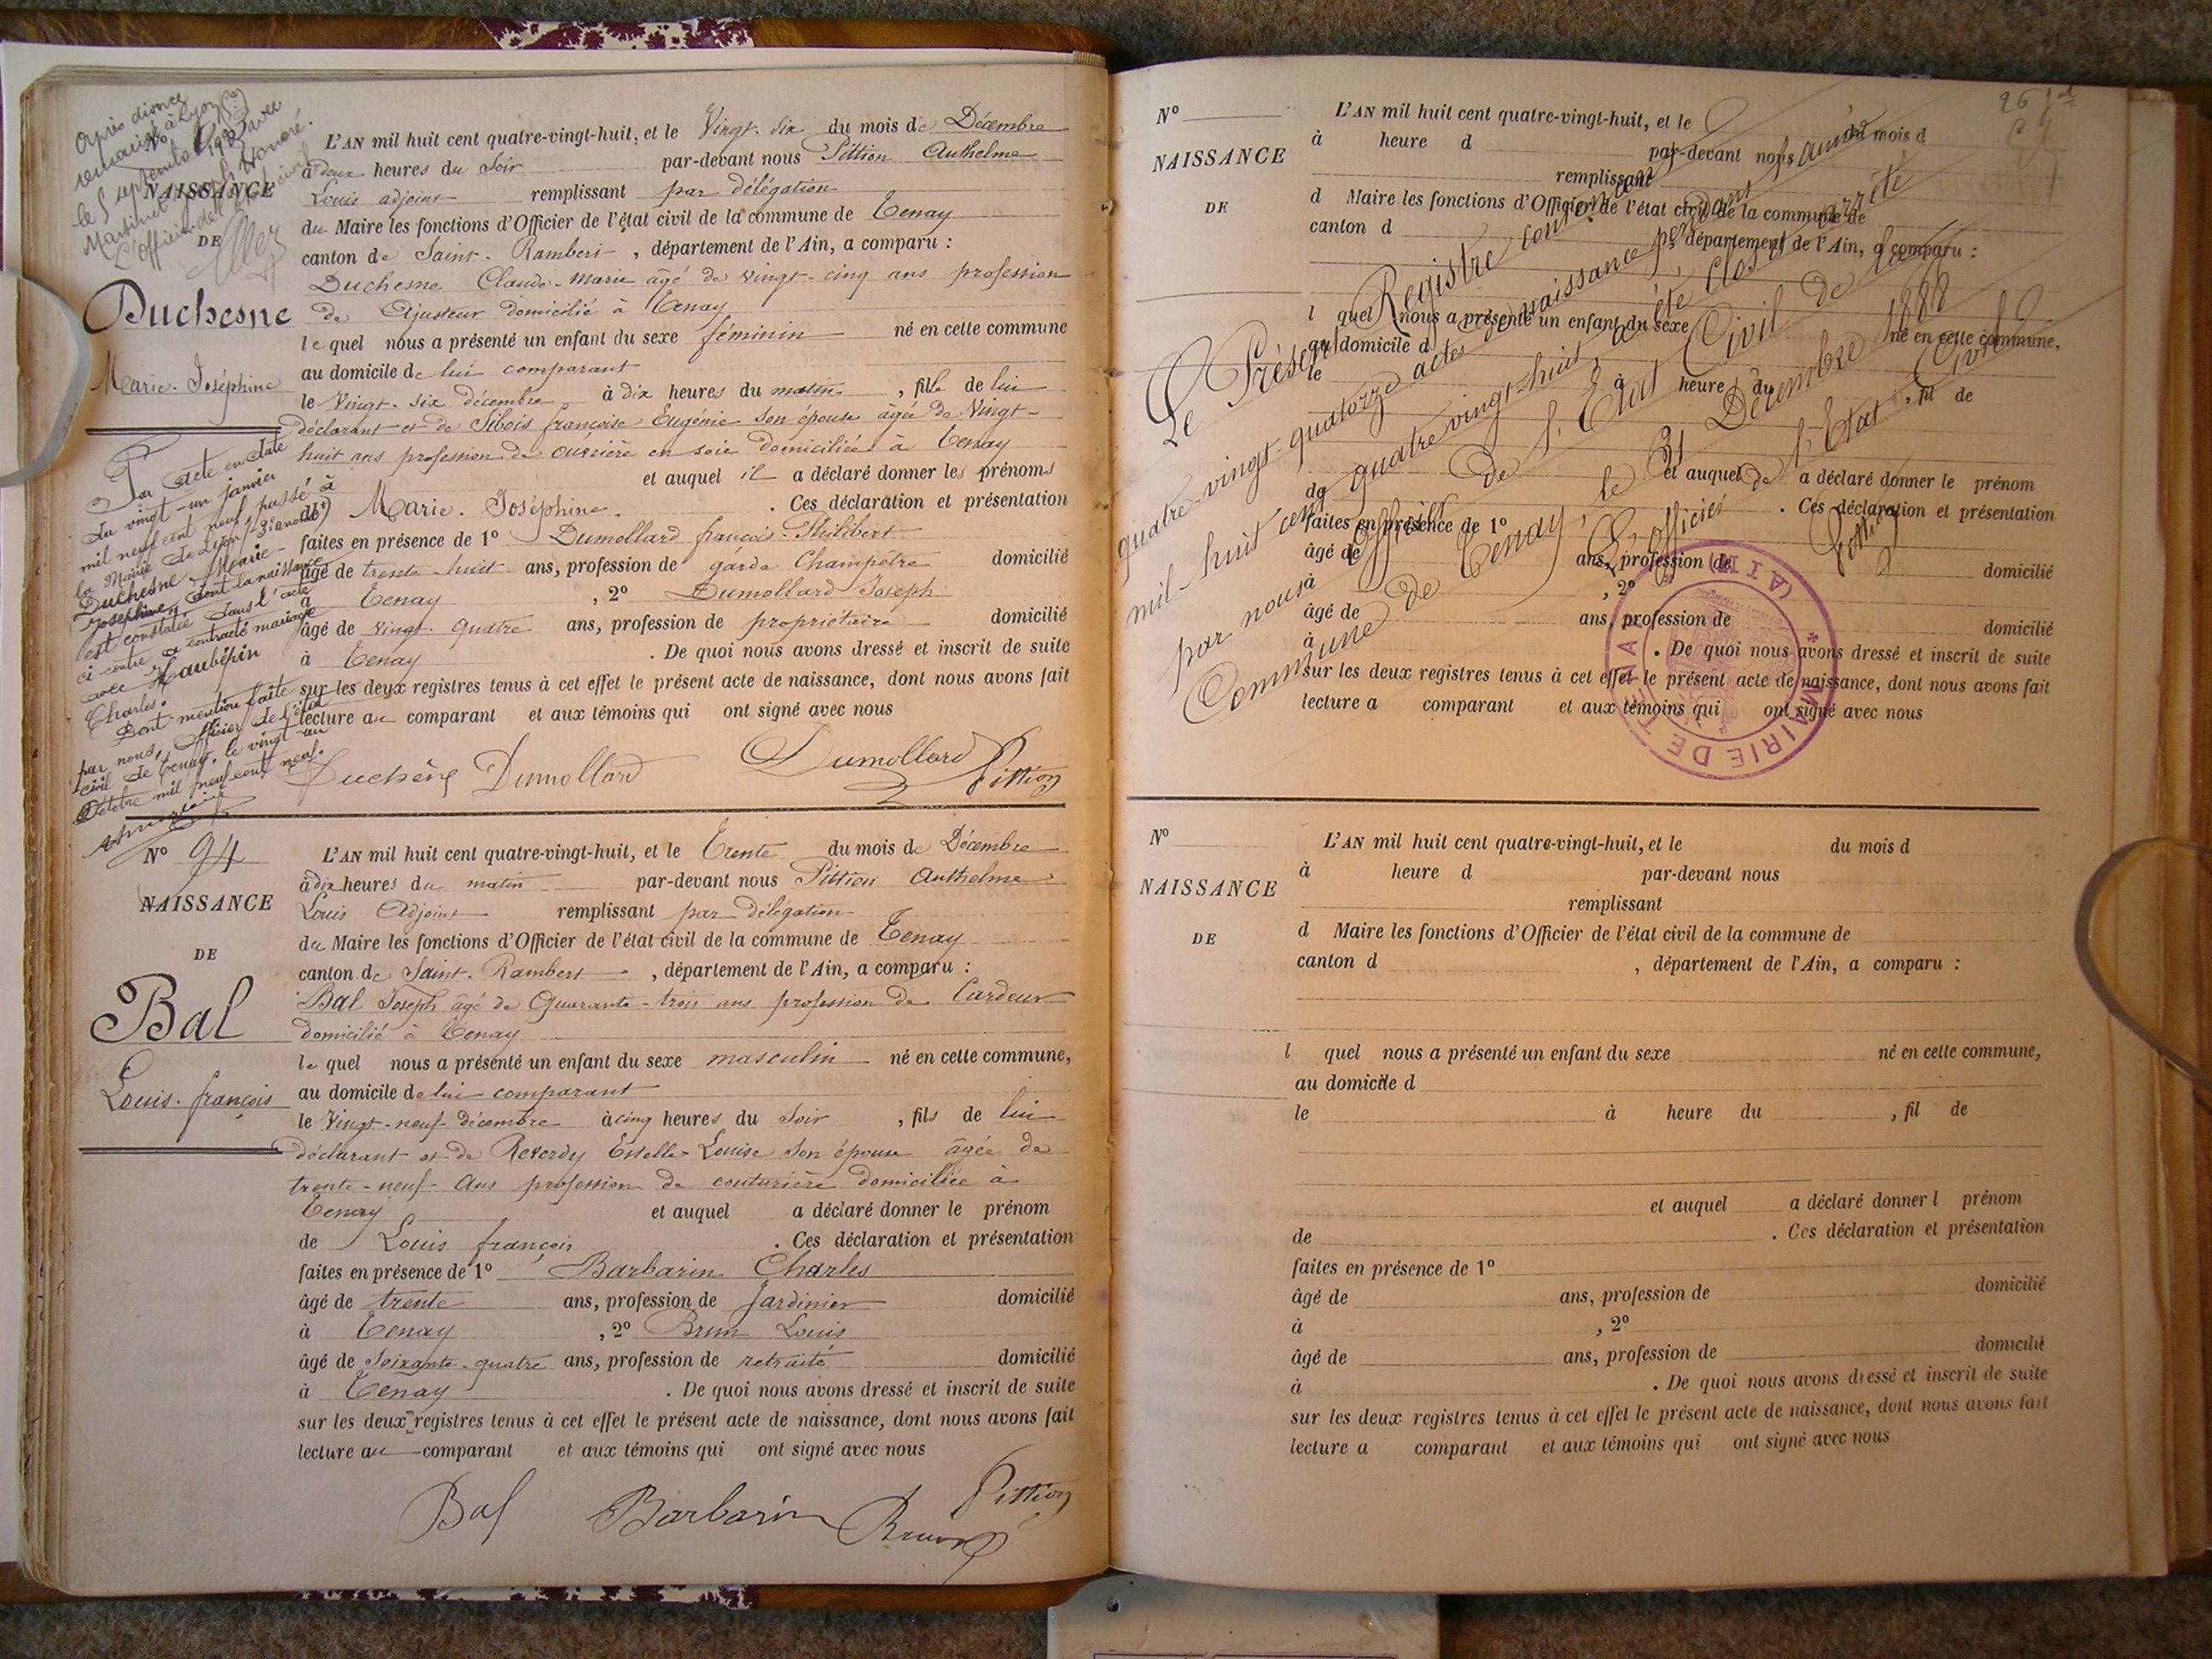 Après divorce
remariée à Lyon
le 5 septembre 1923 avec
Martinet Joseph Honoré.
L'officier de l'état civil
NAISSANCE
DE
Duchesne
Marie. Joséphine
Par acte en date
du vingt-un janvier
mil neuf cent neuf passé à
la Mairie de Lyon
Duchesne Marie-
Joséphine, dont la naissance
est constatée dans l'acte
ci-contre a contracté mariage
avec Haubépin
Charles.
Dont mention faite
par nous, officier de l'état
civil de Tenay, le vingt un
Octobre mil neuf cent neuf.
L'AN mil huit cent quatre-vingt-huit, et le Vingt-six du mois de Décembre
à deux heures du Soir par-devant nous Pittion Anthelme
Louis adjoint remplissant par délégation
du Maire les fonctions d'Officier de l'état civil de la commune de Tenay
canton de Saint-Rambert, département de l'Ain, a comparu :
Duchesne Claude-Marie âgé de vingt-cinq ans profession
de Ajusteur domicilié à Tenay
lequel nous a présenté un enfant du sexe féminin né en cette commune
au domicile de lui comparant
le Vingt-six décembre à dix heures du matin, fille de lui
déclarant et de Sibois françoise Eugénie son épouse âgée de Vingt-
huit ans profession de ouvrière en soie domiciliée à Tenay
et auquel il a déclaré donner les prénoms
de Marie. Joséphine. Ces déclaration et présentation
faites en présence de 1° Dumollard françois-Philibert
âgé de trente-huit ans, profession de garde Champêtre domicilié
à Tenay, 2° Dumollard Joseph
âgé de vingt-quatre ans, profession de propriétaire domicilié
à Tenay. De quoi nous avons dressé et inscrit de suite
sur les deux registres tenus à cet effet le présent acte de naissance, dont nous avons fait
lecture au comparant et aux témoins qui ont signé avec nous
Duchêne Dumollard Dumollard Pittion
N° 94
NAISSANCE
DE
Bal
Louis. françois
L'AN mil huit cent quatre-vingt-huit, et le Trente du mois de Décembre
à dix heures du matin par-devant nous Pittion Anthelme
Louis Adjoint remplissant par délégation
du Maire les fonctions d'Officier de l'état civil de la commune de Tenay
canton de Saint-Rambert, département de l'Ain, a comparu :
Bal Joseph âgé de Quarante-trois ans profession de Cardeur
domicilié à Tenay
lequel nous a présenté un enfant du sexe masculin né en cette commune,
au domicile de lui comparant
le Vingt-neuf décembre à cinq heures du Soir, fils de lui
déclarant et de Reverdy Estelle-Louise son épouse âgée de
trente-neuf ans profession de couturière domiciliée à
Tenay et auquel a déclaré donner le prénom
de Louis françois. Ces déclaration et présentation
faites en présence de 1° Barbarin Charles
âgé de trente ans, profession de Jardinier domicilié
à Tenay, 2° Brun Louis
âgé de Soixante-quatre ans, profession de retraité domicilié
à Tenay. De quoi nous avons dressé et inscrit de suite
sur les deux registres tenus à cet effet le présent acte de naissance, dont nous avons fait
lecture au comparant et aux témoins qui ont signé avec nous
Bal Barbarin Brun Pittion
26
N°
NAISSANCE
DE
L'AN mil huit cent quatre-vingt-huit, et le du mois d
à heure d par-devant nous
remplissant
d Maire les fonctions d'Officier de l'état civil de la commune de
canton d, département de l'Ain, a comparu :
l quel nous a présenté un enfant du sexe né en cette commune,
au domicile d
le à heure du, fil de
et auquel a déclaré donner le prénom
de. Ces déclaration et présentation
faites en présence de 1°
âgé de ans, profession de domicilié
à, 2°
âgé de ans, profession de domicilié
à. De quoi nous avons dressé et inscrit de suite
sur les deux registres tenus à cet effet le présent acte de naissance, dont nous avons fait
lecture a comparant et aux témoins qui ont signé avec nous
Le Présent Registre contenant
quatre-vingt-quatorze actes de naissance pendant l'année
mil-huit cent quatre vingt-huit, a été clos et arrêté
par nous Officier de l'Etat Civil de la
Commune de Tenay, le 31 Décembre 1888
L'officier de l'Etat Civil
Pittion
MAIRIE DE TENAY (AIN)
N°
NAISSANCE
DE
L'AN mil huit cent quatre-vingt-huit, et le du mois d
à heure d par-devant nous
remplissant
d Maire les fonctions d'Officier de l'état civil de la commune de
canton d, département de l'Ain, a comparu :
l quel nous a présenté un enfant du sexe né en cette commune,
au domicile d
le à heure du, fil de
et auquel a déclaré donner l prénom
de. Ces déclaration et présentation
faites en présence de 1°
âgé de ans, profession de domicilié
à, 2°
âgé de ans, profession de domicilié
à. De quoi nous avons dressé et inscrit de suite
sur les deux registres tenus à cet effet le présent acte de naissance, dont nous avons fait
lecture a comparant et aux témoins qui ont signé avec nous